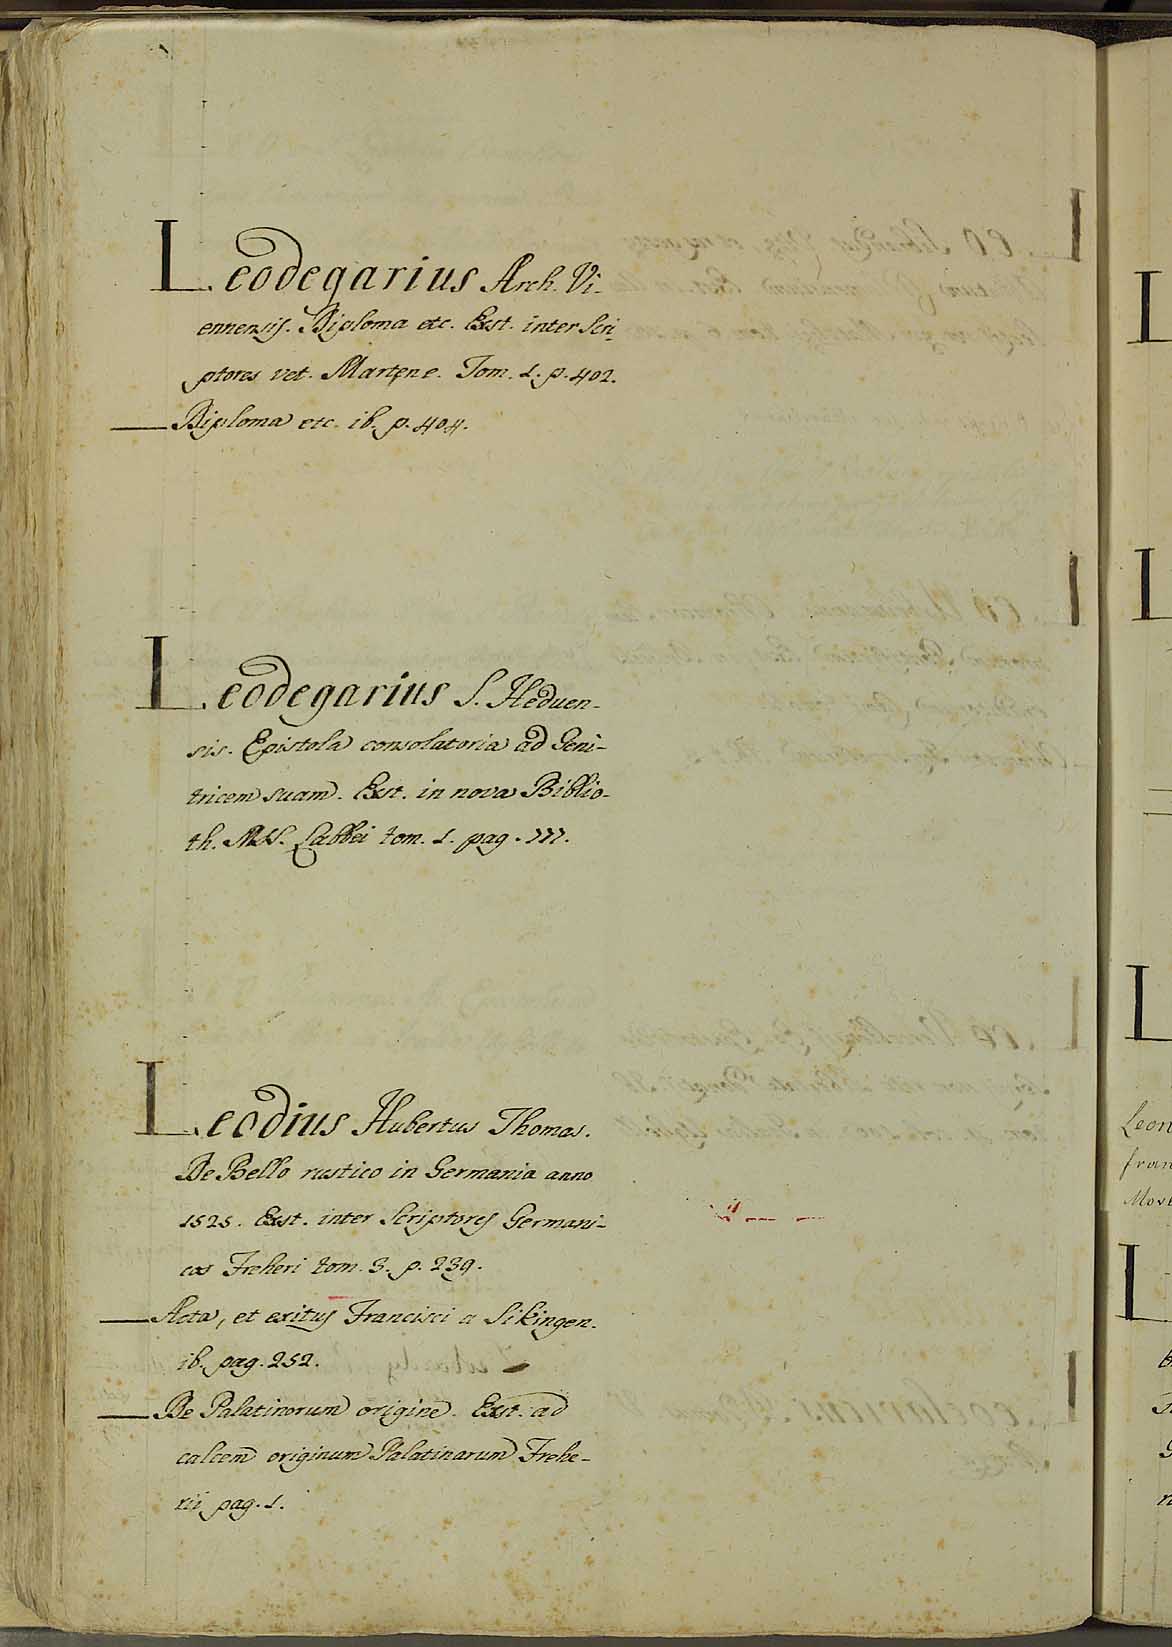 Leodegarius Arch. Vi-
ennensis. Diploma etc. Exst. inter Scri-
ptores vet. Martene. Tom. 1. p. 402.
— Diploma etc. ib. p. 404.
Leodegarius S. Heduen-
sis. Epistola consolatoria ad Geni-
tricem suam. Exst. in nova Biblio-
th. MSS. Labbei tom. 1. pag. 777.
Leodius Hubertus Thomas.
De Bello rustico in Germania anno
1525. Exst. inter Scriptores Germani-
cos Freheri tom. 3. p. 239.
— Acta, et exitus Francisci a Sikingen.
ib. pag. 252.
— De Palatinorum origine. Exst. ad
calcem originum Palatinarum Frehe-
rii pag. 1.
L
L
L
Leon
fran
Mose
L